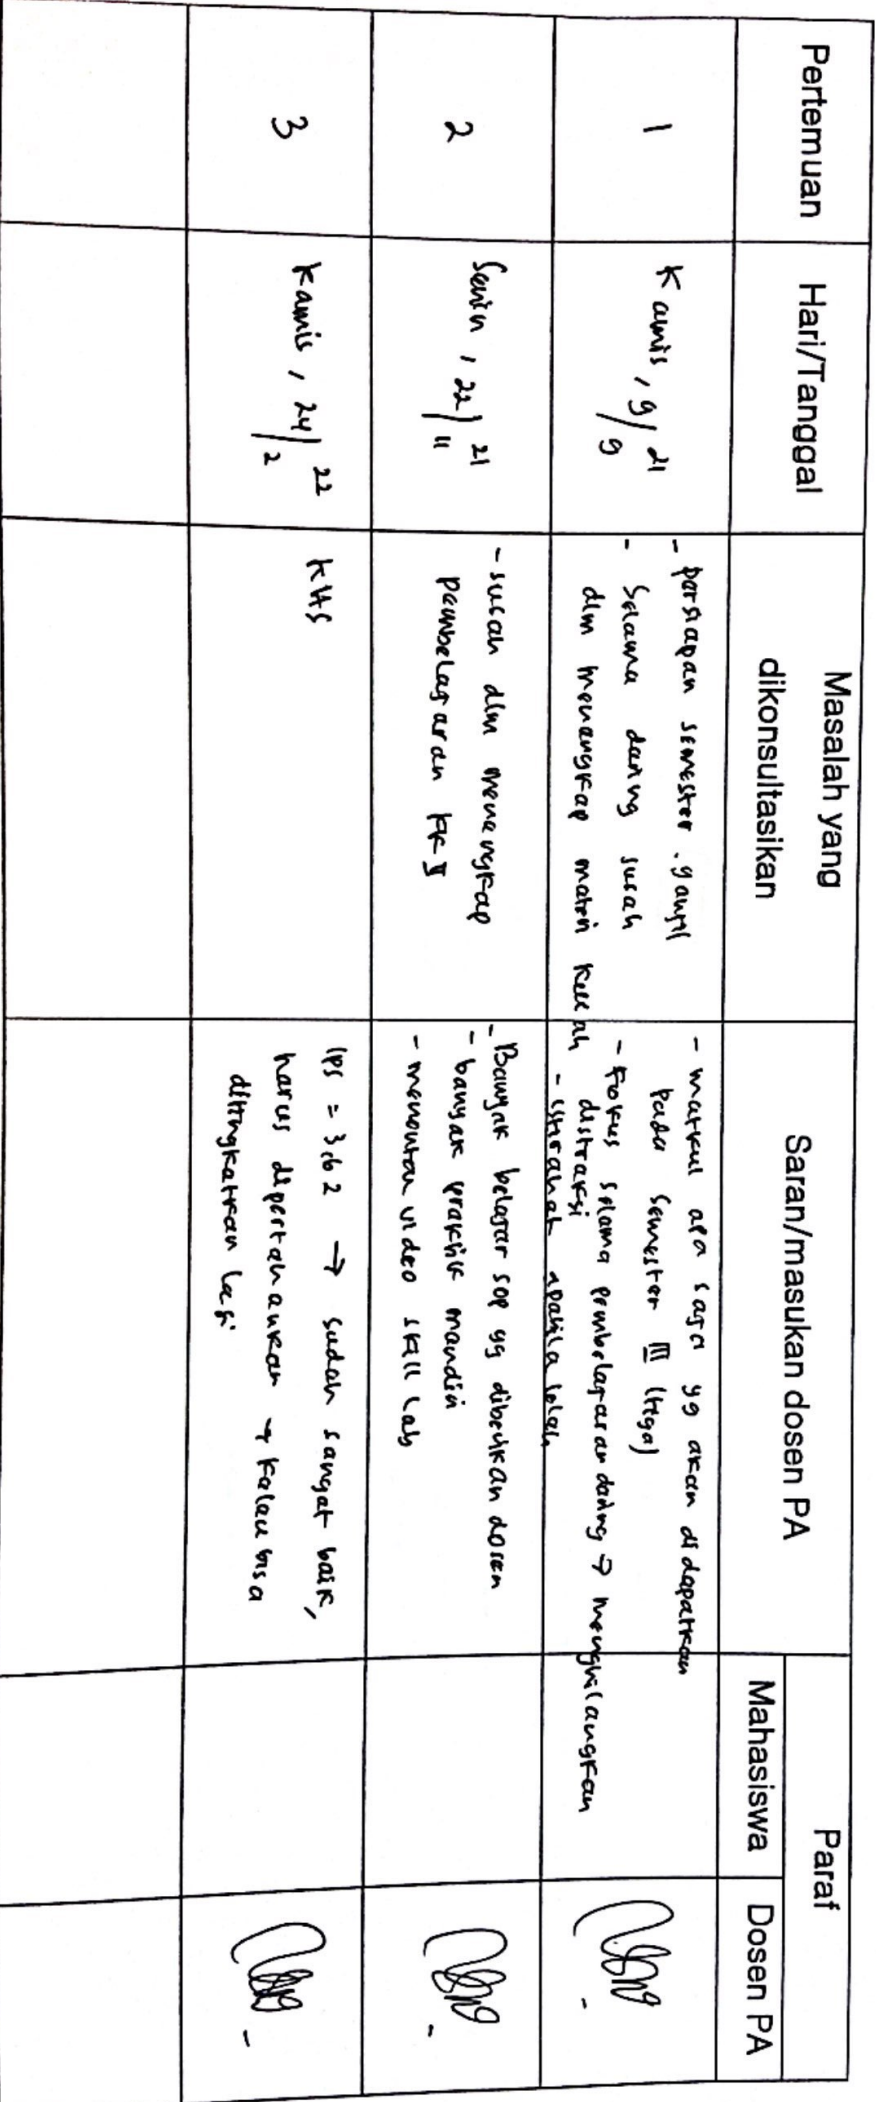 Pertemuan
Hari/Tanggal
Masalah yang
dikonsultasikan
Saran/masukan dosen PA
Paraf
Mahasiswa
Dosen PA
1
Kamis, 9/9 21
- persiapan semester ganjil
- Selama daring susah
dlm menangkap materi kuliah
- matkul apa saja yg akan didapatkan
pada semester III (tiga)
- Fokus selama pembelajaran daring → menghilangkan
distraksi
- istirahat apabila lelah
2
Senin, 22/11 21
- susah dlm menangkap
pembelajaran
- Banyak belajar sop yg diberikan dosen
- banyak praktik mandiri
- menonton video skill lab
3
Kamis, 24/2 22
KHS
IPS = 3,62 → sudah sangat baik,
harus dipertahankan → kalau bisa
ditingkatkan lagi